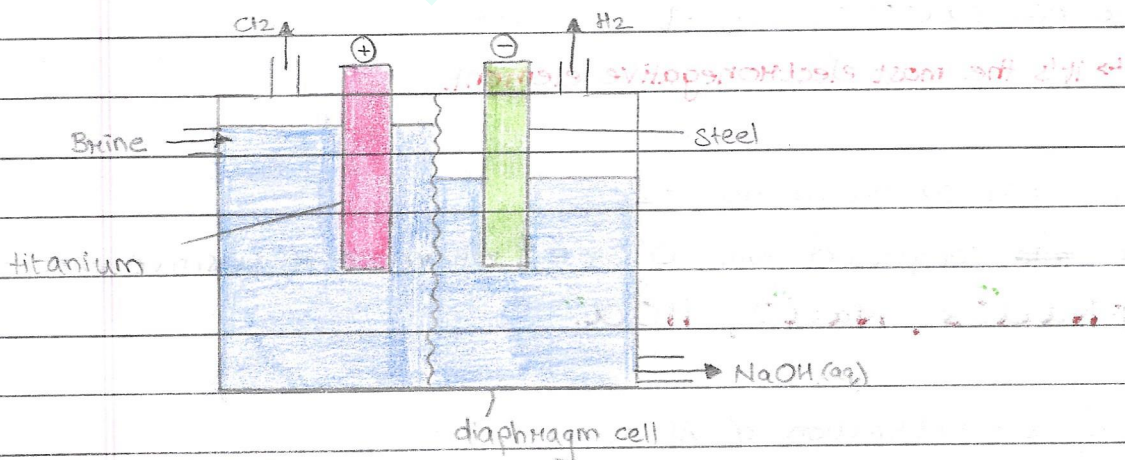 Cl2
H2
⊕
⊖
Brine
Steel
titanium
NaOH (aq)
diaphragm cell